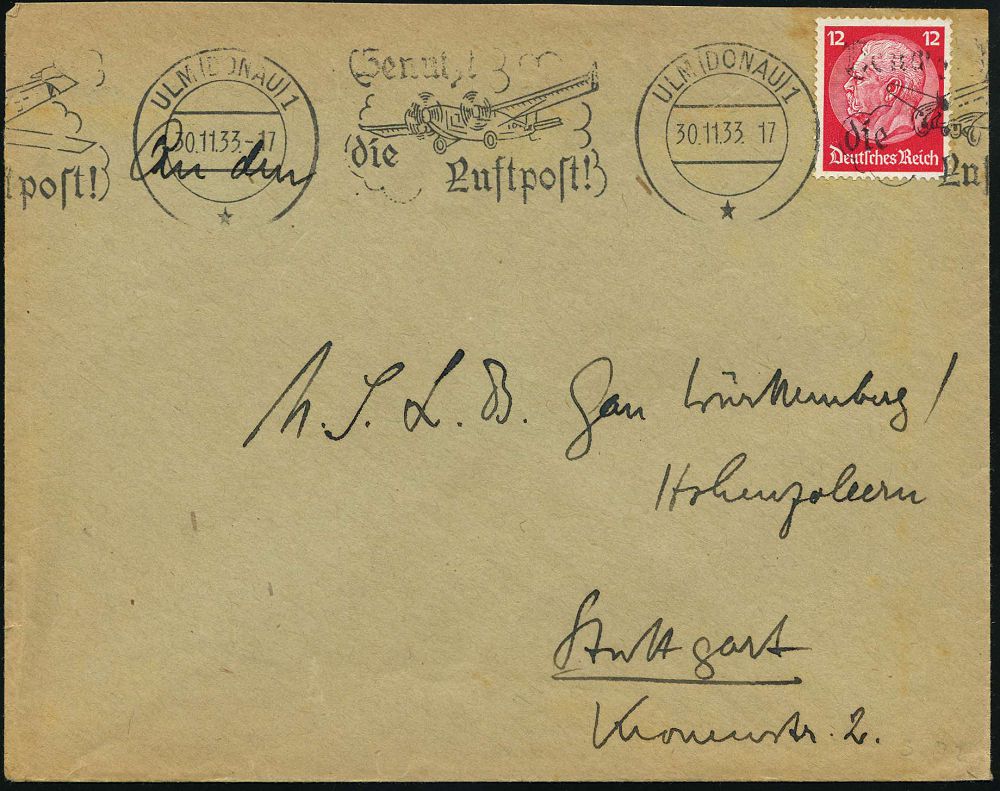 ULM (DONAU) 1
30.11.33.-17
Benutzt
die
Luftpost!
ULM (DONAU) 1
30.11.33. 17
12 12
die
Deutsches Reich
tpost!
Luf
An den
N.S.L.B. Gau Württemberg/
Hohenzollern
Stuttgart
Kronenstr. 2.